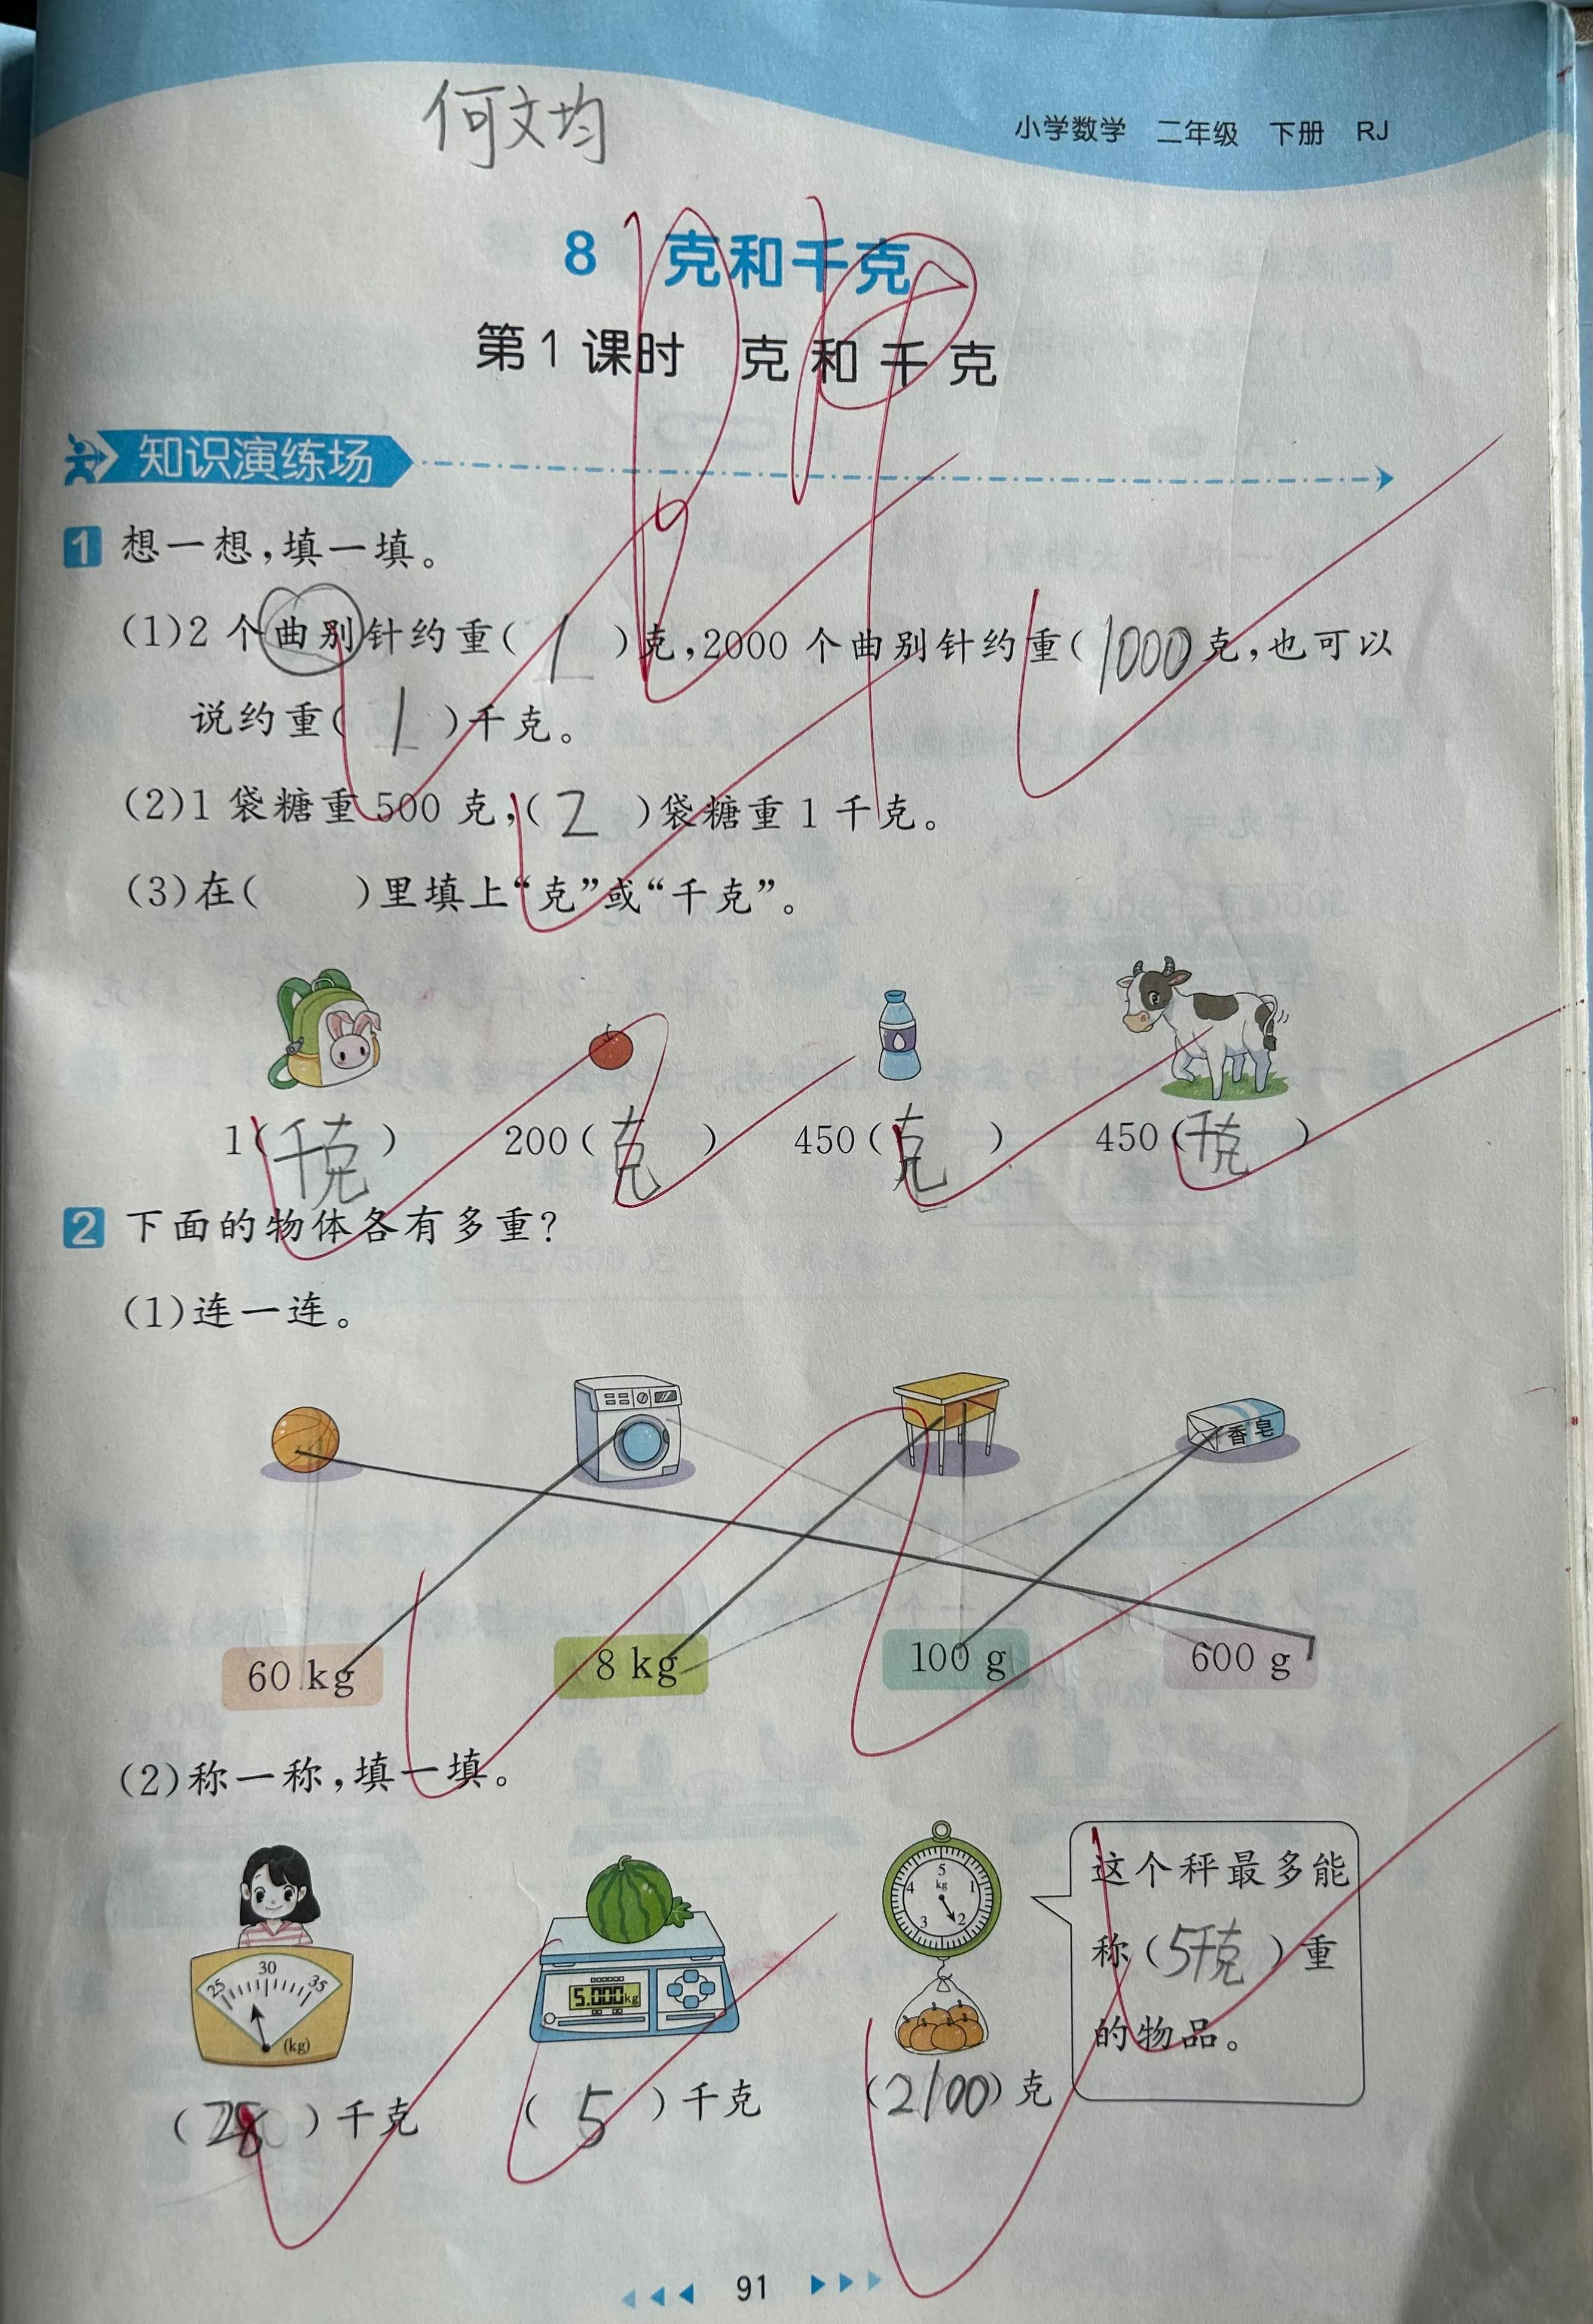 何文均
小学数学 二年级 下册 RJ
8 克和千克
第1课时 克和千克
知识演练场
1 想一想,填一填。
(1)2个曲别针约重(1)克,2000个曲别针约重(1000克,也可以
说约重(1)千克。
(2)1袋糖重500克,(2)袋糖重1千克。
(3)在( )里填上“克”或“千克”。
1(千克) 200(克) 450(克) 450(千克)
2 下面的物体各有多重?
(1)连一连。
香皂
60 kg 8 kg 100 g 600 g
(2)称一称,填一填。
25 30 35
(kg)
5.000kg
5 kg 4 1 3 2
这个秤最多能
称(5千克)重
的物品。
(28)千克 (5)千克 (2100)克
91